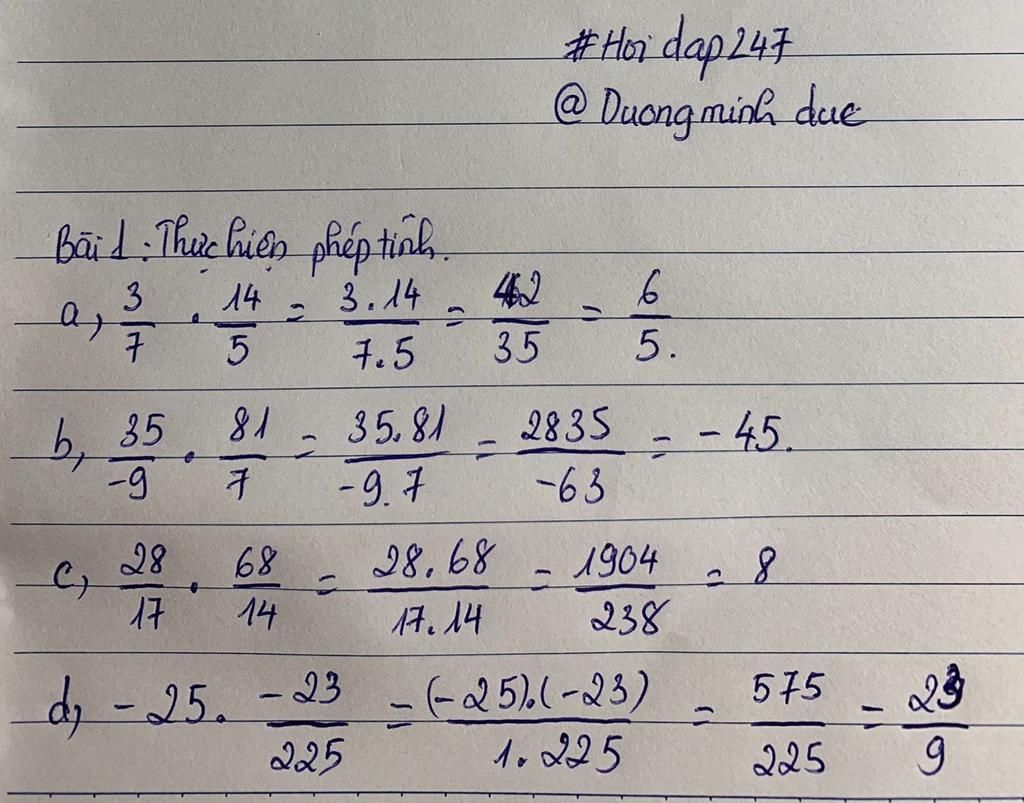 #Hoi dap247
@ Duongminh duc
Bài 1: Thực hiện phép tính.
a, 3/7 . 14/5 = 3.14/7.5 = 42/35 = 6/5.
b, 35/-9 . 81/7 = 35.81/-9.7 = 2835/-63 = -45.
c, 28/17 . 68/14 = 28.68/17.14 = 1904/238 = 8
d, -25. -23/225 = (-25).(-23)/1.225 = 575/225 = 23/9